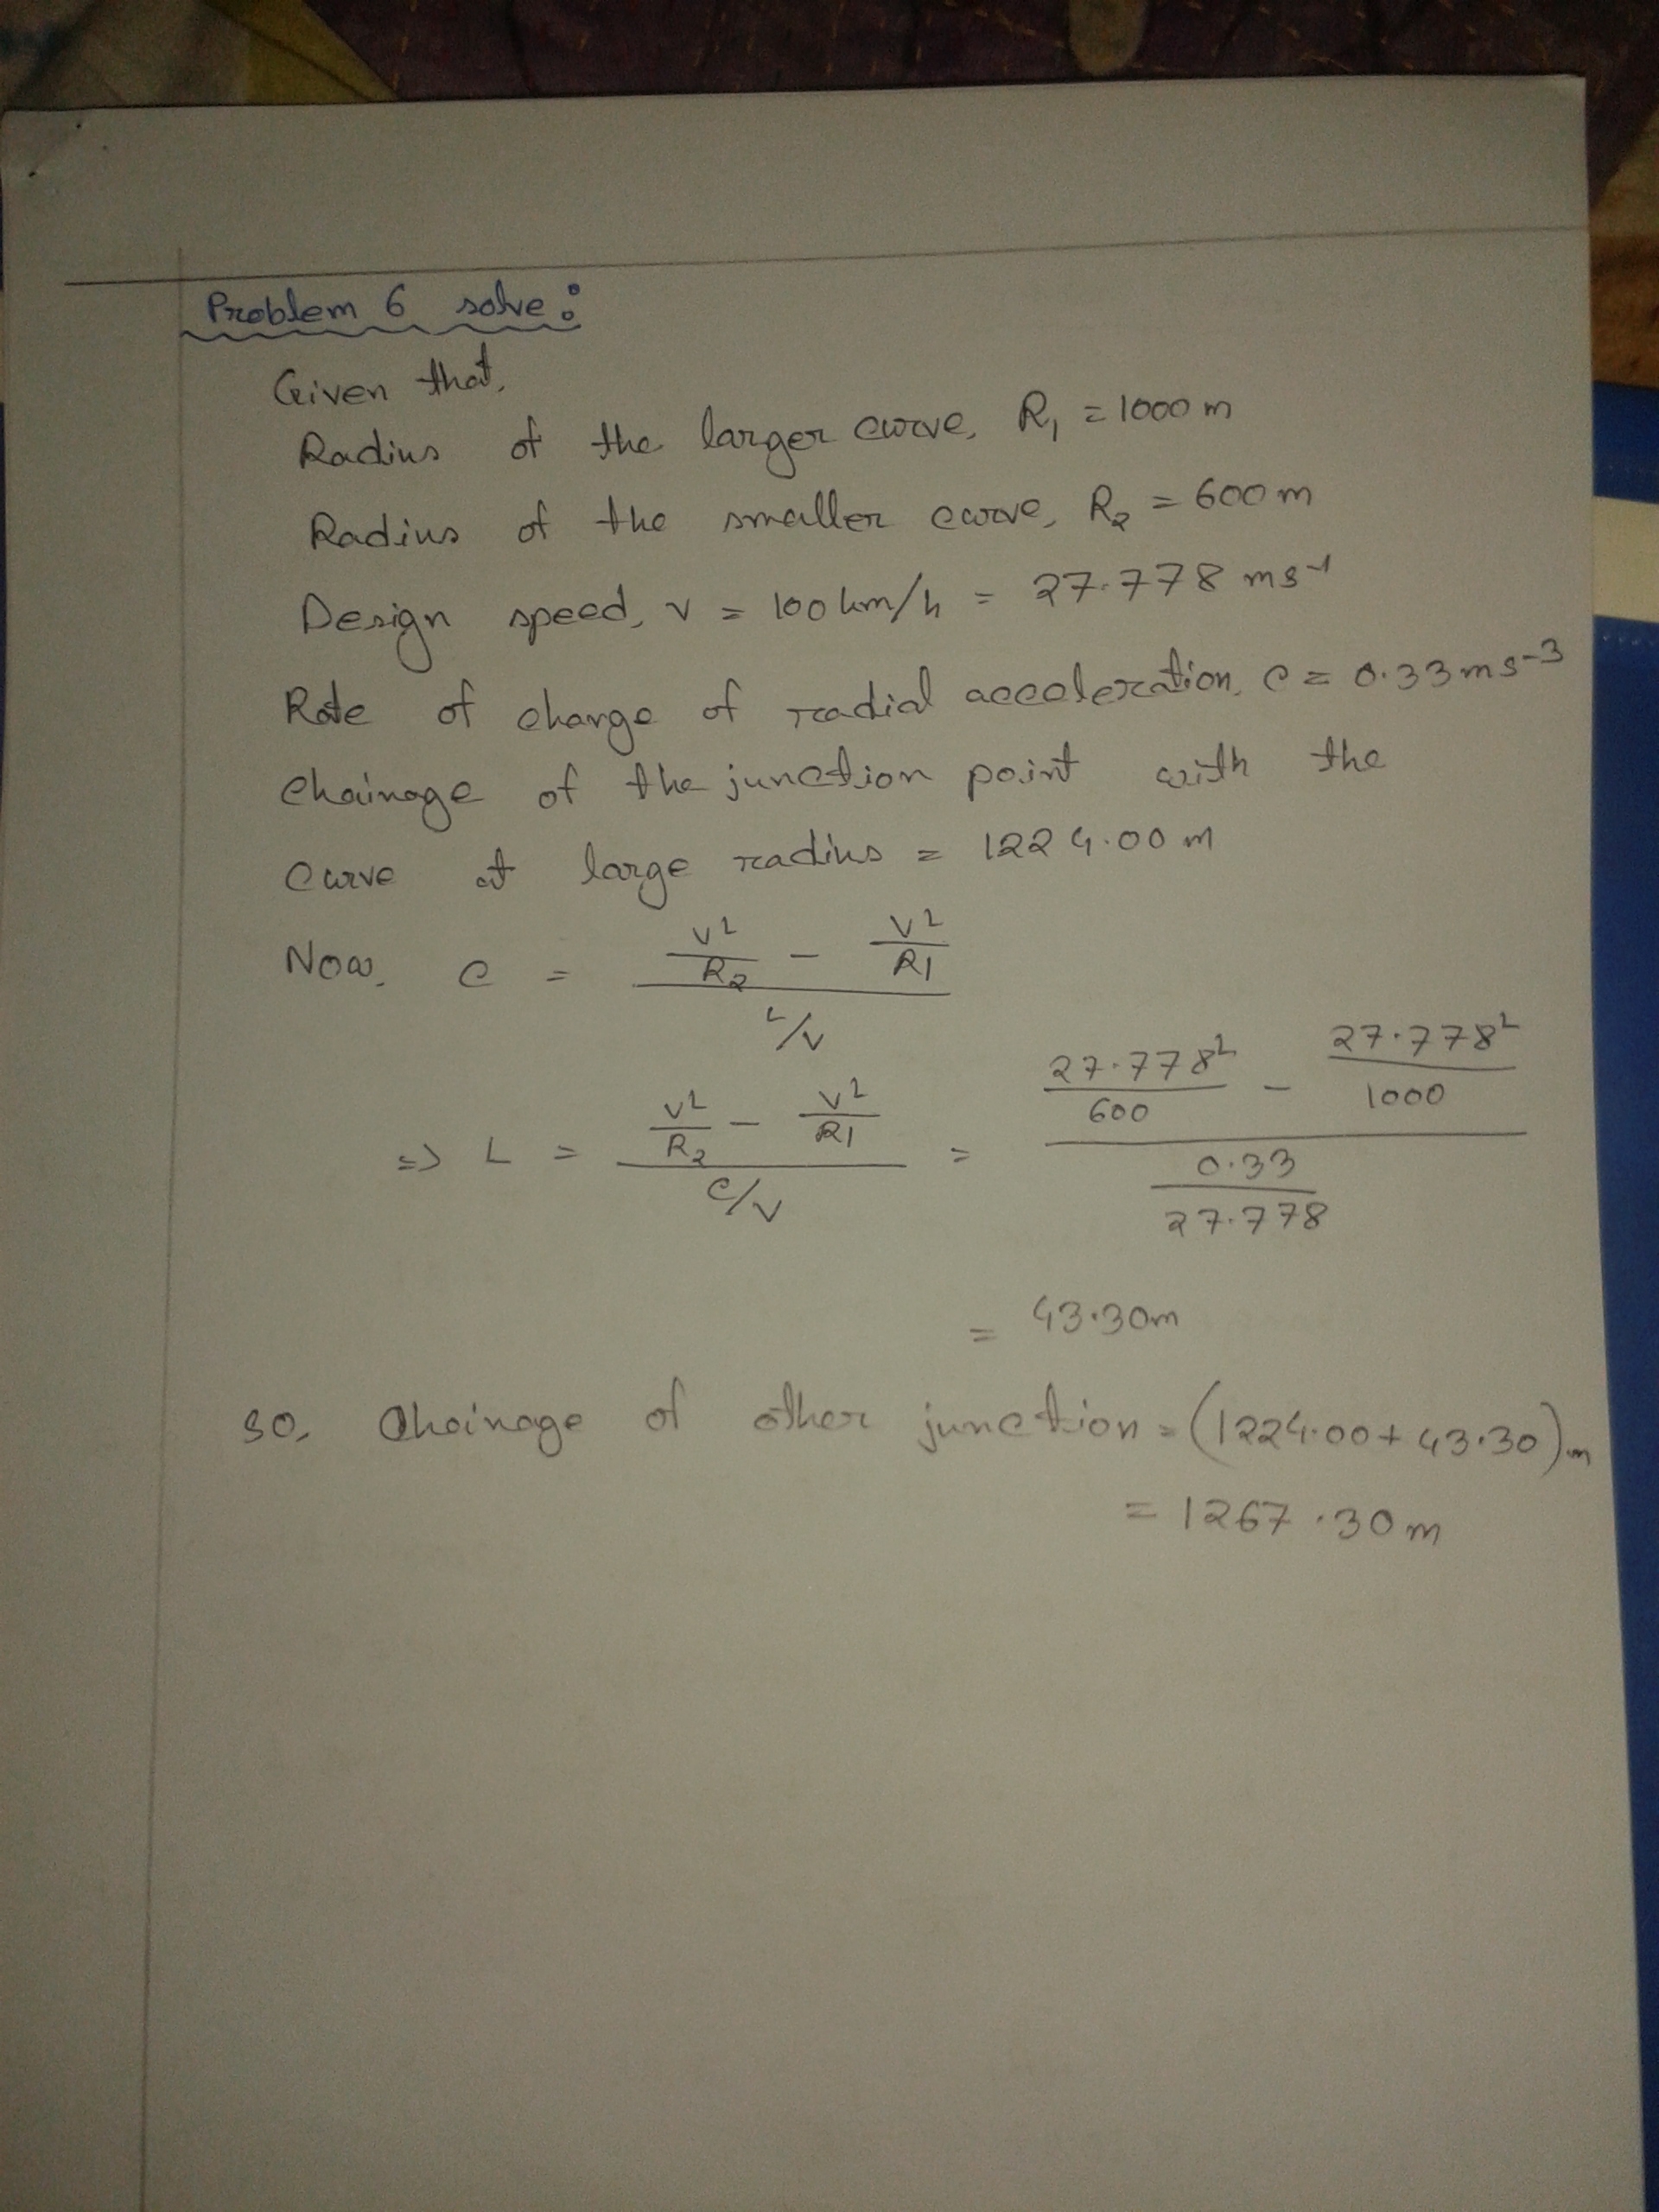 Problem 6 solve:
Given that,
Radius of the larger curve, R₁ = 1000 m
Radius of the smaller curve, R₂ = 600 m
Design speed, v = 100 km/h = 27.778 ms⁻¹
Rate of change of radial acceleration, c = 0.33 ms⁻³
Chainage of the junction point with the
curve at large radius = 1224.00 m
Now, c = (V²/R₂ - V²/R1) / (L/V)
=> L = (V²/R₂ - V²/R1) / (C/V) = (27.778²/600 - 27.778²/1000) / (0.33/27.778)
= 43.30m
So, Chainage of other junction = (1224.00 + 43.30) m
= 1267.30 m